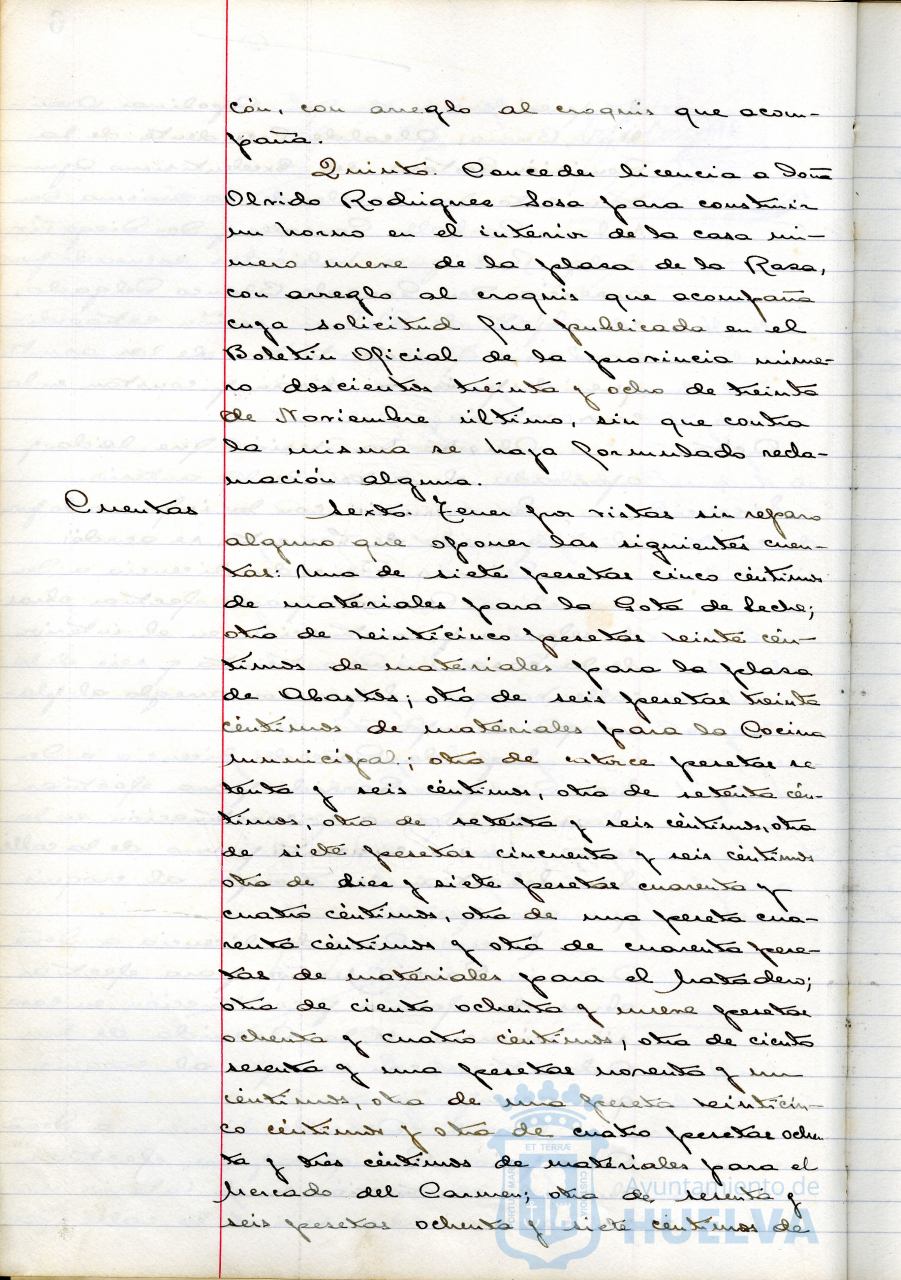 ción, con arreglo al croquis que acom-
paña.
Quinto. Conceder licencia a Doña
Olvido Rodriguez Sosa para construir
un horno en el interior de la casa nú-
mero nueve de la plaza de la Raza,
con arreglo al croquis que acompaña
cuya solicitud fue publicada en el
Boletin Oficial de la provincia núme-
ro doscientos treinta y ocho de treinta
de Noviembre último, sin que contra
la misma se haya formulado recla-
mación alguna.
Cuentas
Sexto. Tener por vistas sin reparo
alguno que oponer las siguientes cuen-
tas: Una de siete pesetas cinco céntimos
de materiales para la Gota de Leche;
otra de veinticinco pesetas veinte cén-
timos de materiales para la plaza
de Abastos; otra de seis pesetas treinta
céntimos de materiales para la Cocina
municipal; otra de catorce pesetas se
tenta y seis céntimos, otra de setenta cén-
timos, otra de setenta y seis céntimos, otra
de siete pesetas cincuenta y seis céntimos
otra de diez y siete pesetas cuarenta y
cuatro céntimos, otra de una peseta cua-
renta céntimos y otra de cuarenta pese-
tas de materiales para el Matadero;
otra de ciento ochenta y nueve pesetas
ochenta y cuatro céntimos, otra de ciento
sesenta y una pesetas noventa y un
céntimos, otra de una peseta veinticin-
co céntimos y otra de cuatro pesetas ochen
ta y tres céntimos de materiales para el
Mercado del Carmen; otra de sesenta y
seis pesetas ochenta y siete céntimos de
ET TERRÆ
Ayuntamiento de
HUELVA